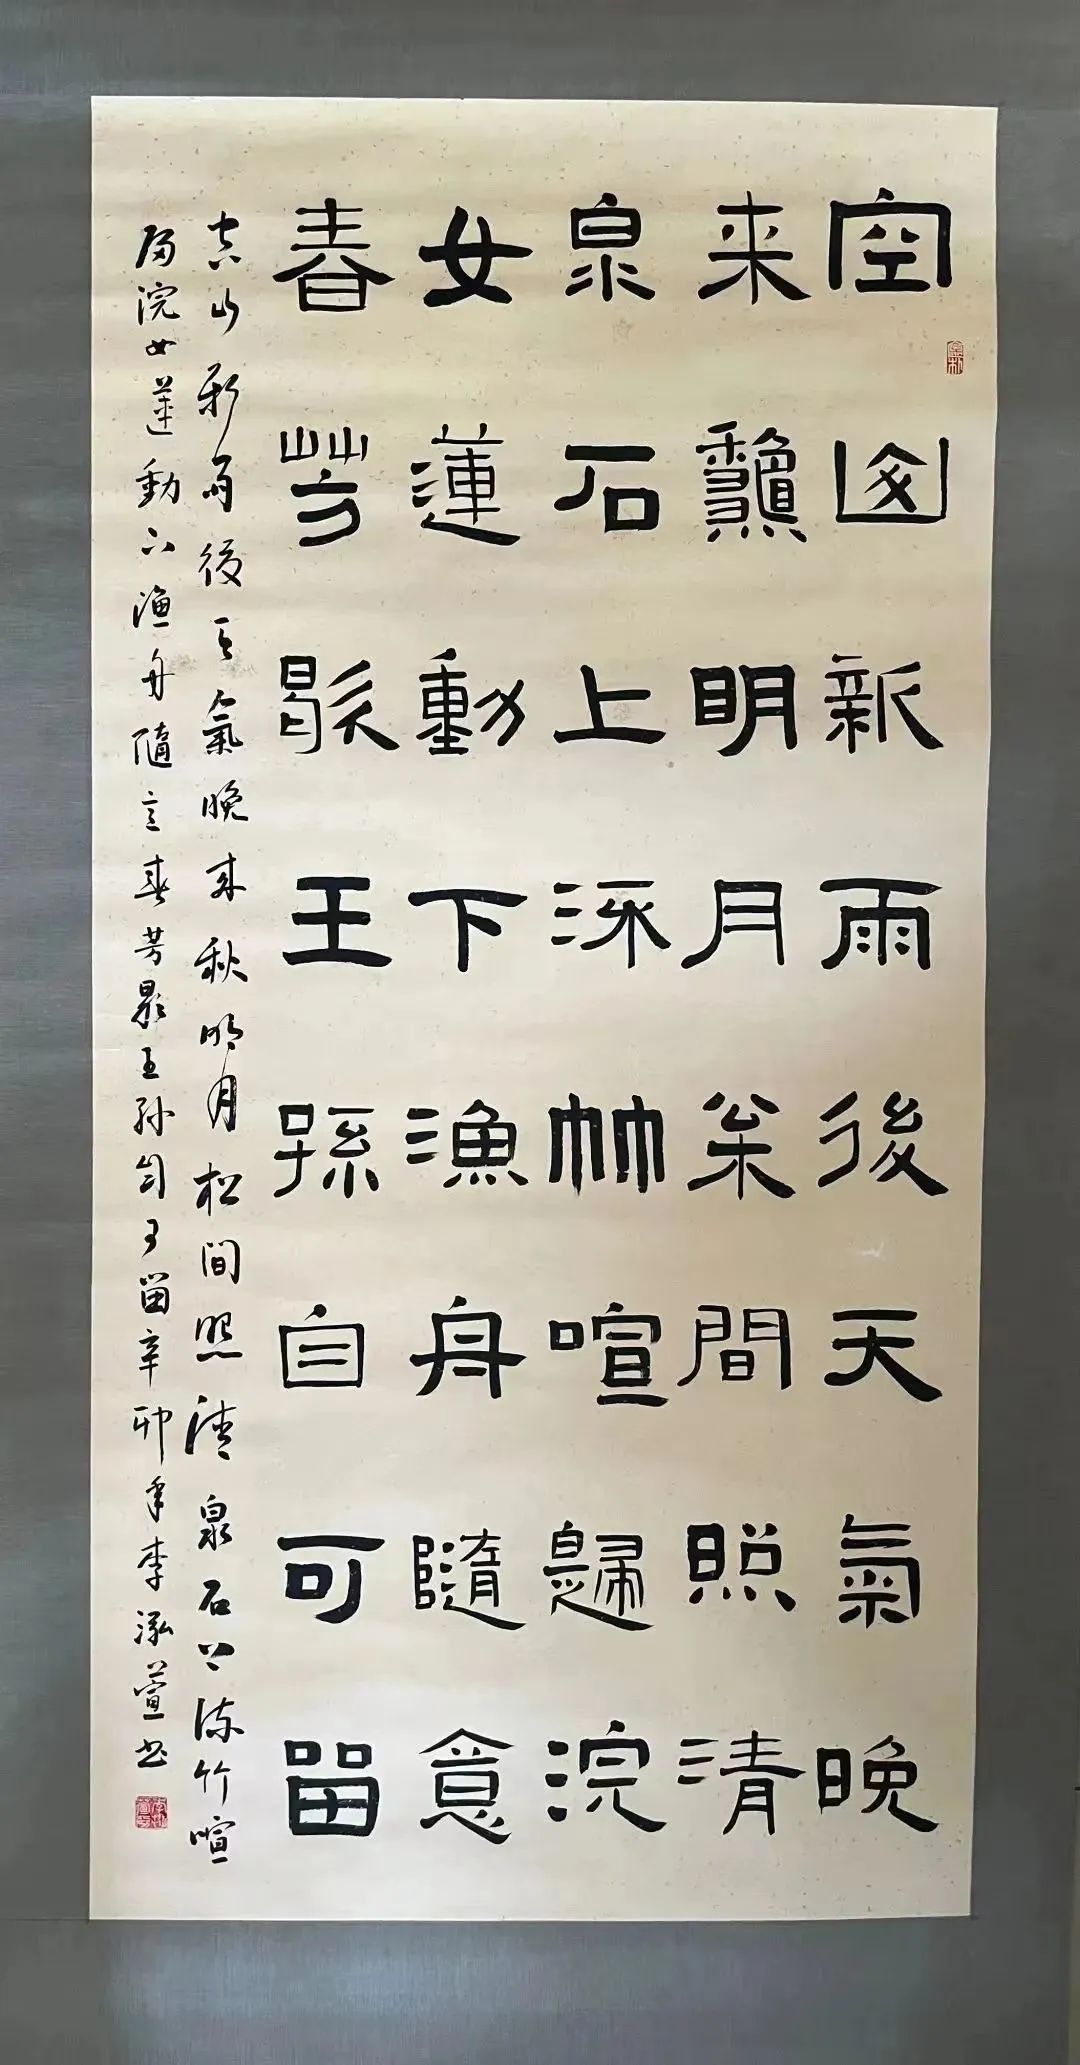 空山新雨後天氣晚
来龝明月枀間照清
泉石上流竹喧歸浣
女蓮動下漁舟隨意
春芳歇王孫自可留
空山新雨後天氣晚来秋明月松間照清泉石上流竹喧
歸浣女蓮動下漁舟隨意春芳歇王孫自可留辛卯年李泓萱书